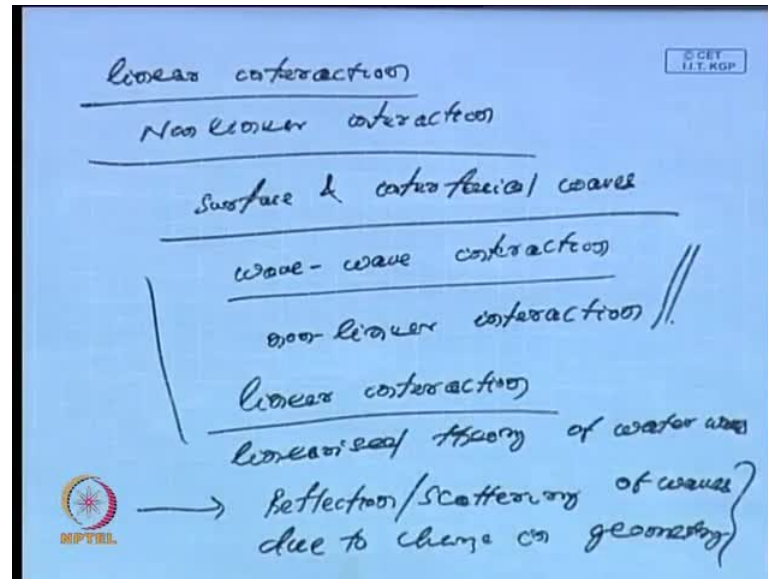 © CET
I.I.T. KGP
linear interaction
Non linear interaction
Surface & interfacial waves
wave-wave interaction
non-linear interaction
linear interaction
linearised theory of water waves
Reflection/scattering of waves
due to change in geometry
NPTEL